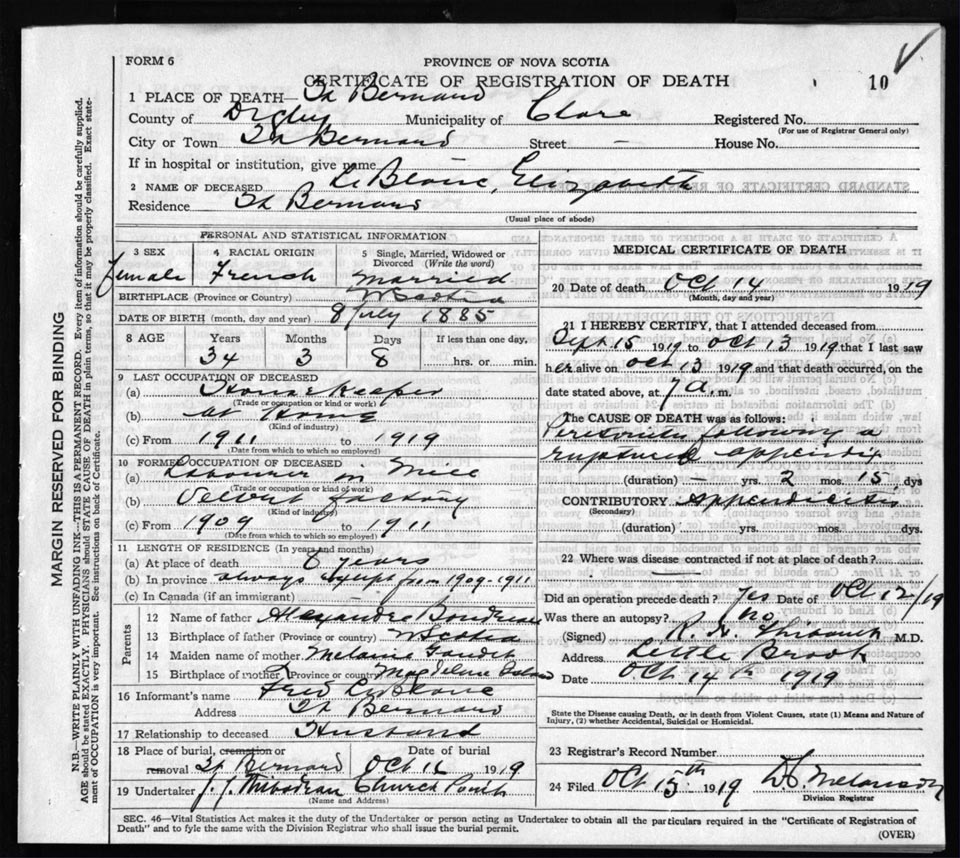 FORM 6
PROVINCE OF NOVA SCOTIA
CERTIFICATE OF REGISTRATION OF DEATH
10
1 PLACE OF DEATH— St Bernard
County of Digby Municipality of Clare Registered No.
(For use of Registrar General only)
City or Town St Bernard Street – House No.
If in hospital or institution, give name
2 NAME OF DECEASED LeBlanc, Elizabeth
Residence St Bernard
(Usual place of abode)
PERSONAL AND STATISTICAL INFORMATION
3 SEX 4 RACIAL ORIGIN 5 Single, Married, Widowed or
Divorced (Write the word)
Female French Married
BIRTHPLACE (Province or Country) N Scotia
DATE OF BIRTH (month, day and year) 8 July 1885
8 AGE Years Months Days If less than one day,
34 3 8 hrs. or min.
9 LAST OCCUPATION OF DECEASED
(a) House Keeper
(Trade or occupation or kind or work)
(b) at Home
(Kind of industry)
(c) From 1911 to 1919
(Date from which to which so employed)
10 FORMER OCCUPATION OF DECEASED
(a) Labourer in Mill
(Trade or occupation or kind of work)
(b) Velvet factory
(Kind of industry)
(c) From 1909 to 1911
(Date from which to which so employed)
11 LENGTH OF RESIDENCE (In years and months)
(a) At place of death 8 years
(b) In province always except from 1909-1911
(c) In Canada (if an immigrant)
Parents
12 Name of father Alexandre Boudreau
13 Birthplace of father (Province or country) N Scotia
14 Maiden name of mother Melanie Gaudet
15 Birthplace of mother (Province or country) Magdelene Island
16 Informant's name Fred LeBlanc
Address St Bernard
17 Relationship to deceased Husband
18 Place of burial, cremation or Date of burial
removal St Bernard Oct 16 1919
19 Undertaker J. J. Thibodeau Church Point
(Name and Address)
MEDICAL CERTIFICATE OF DEATH
20 Date of death Oct 14 1919
(Month, day and year)
21 I HEREBY CERTIFY, that I attended deceased from
Sept 15 1919 to Oct 13 1919 that I last saw
her alive on Oct 13 1919 and that death occurred, on the
date stated above, at 7 a.m.
The CAUSE OF DEATH was as follows:
Peritonitis following a
ruptured appendix
(duration) – yrs. 2 mos. 15 dys
CONTRIBUTORY Appendicitis
(Secondary)
(duration) yrs. mos. dys.
22 Where was disease contracted if not at place of death?
Did an operation precede death? Yes Date of Oct 12/19
Was there an autopsy? No
(Signed) M.D.
Address Little Brook
Date Oct 14th 1919
State the Disease causing Death, or in death from Violent Causes, state (1) Means and Nature of
Injury, (2) whether Accidental, Suicidal or Homicidal.
23 Registrar's Record Number
24 Filed Oct 15th 1919 Melanson
Division Registrar
SEC. 46—Vital Statistics Act makes it the duty of the Undertaker or person acting as Undertaker to obtain all the particulars required in the "Certificate of Registration of
Death" and to fyle the same with the Division Registrar who shall issue the burial permit.
(OVER)
MARGIN RESERVED FOR BINDING
N.B.—WRITE PLAINLY WITH UNFADING INK—THIS IS A PERMANENT RECORD. Every item of information should be carefully supplied.
AGE should be stated EXACTLY. PHYSICIANS should STATE CAUSE OF DEATH in plain terms, so that it may be properly classified. Exact state-
ment of OCCUPATION is very important. See instructions on back of Certificate.